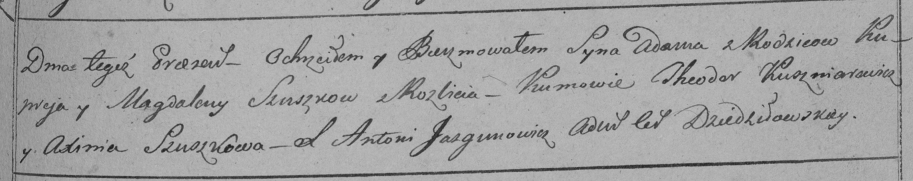 Dnia tegoż Ochrzciłem y Bierzmowałem Syna Adama z Rodzicow Ku-
preja y Magdaleny Szuszkow z Kozlicia – Kumowie Theodor Kuszniarewicz
y Axinia Szuszkowa – X Antoni Jazgunowicz Dziedziłowskey.